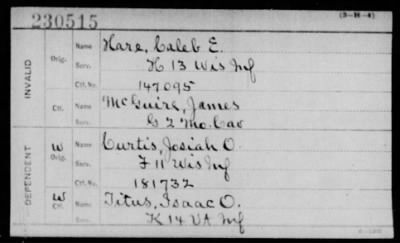 230515
(3-H-4)
INVALID
Orig.
Name Hare, Caleb E.
Serv. H 13 Wis Inf
Ctf. No. 147095
Ctf.
Name McGuire, James
Serv. G 2 Mo. Cav
DEPENDENT
W
Orig.
Name Curtis, Josiah O.
Serv. F 11 Wis Inf
Ctf. No. 181732
W
Ctf.
Name Titus, Isaac O.
Serv. K 14 VA Inf